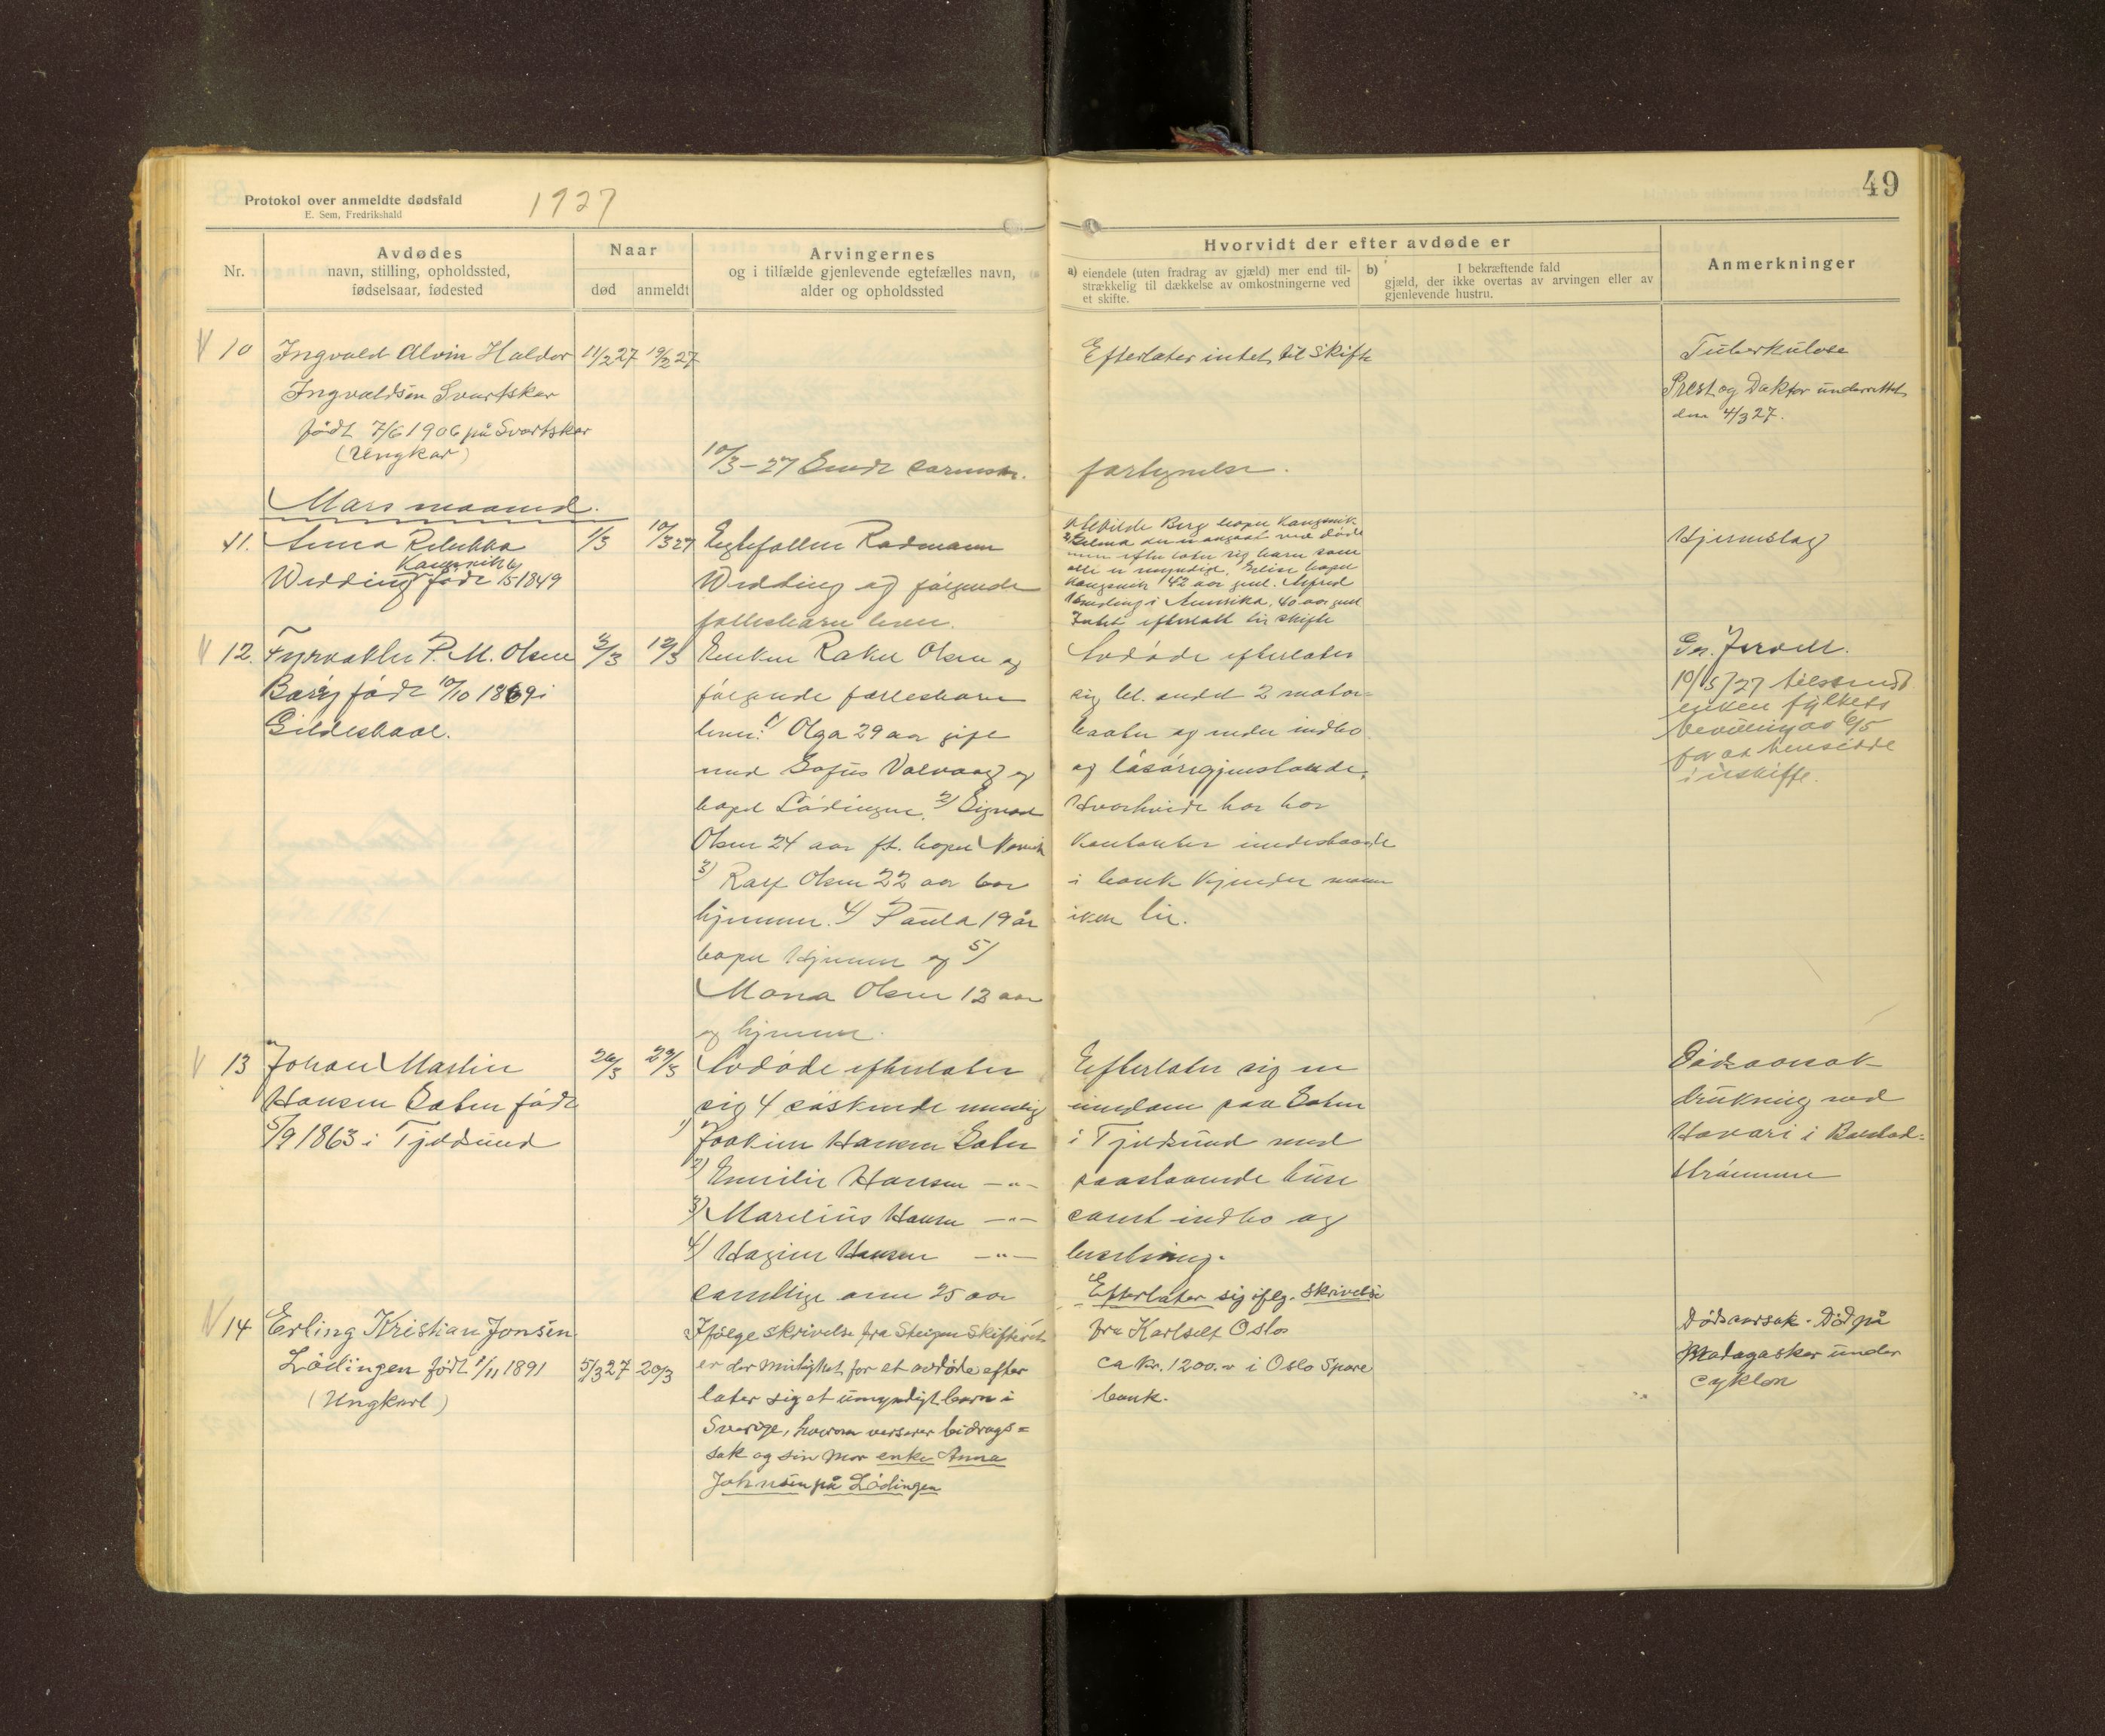 49
Protokol over anmeldte dødsfald 1927
E. Sem, Fredrikshald
Nr.
Avdødes
navn, stilling, opholdssted,
fødselsaar, fødested
Naar
død
anmeldt
Arvingernes
og i tilfælde gjenlevende egtefælles navn,
alder og opholdssted
Hvorvidt der efter avdøde er
a) eiendele (uten fradrag av gjæld) mer end til-
strækkelig til dækkelse av omkostningerne ved
et skifte.
b) I bekræftende fald
gjæld, der ikke overtas av arvingen eller av
gjenlevende hustru.
Anmerkninger
10 Ingvald Alvin Haldor
Ingvaldsen Svartskar
født 7/6 1906 på Svartskar
(Ungkar)
11/2 27
19/2 27
10/3-27 Sendt
Efterlater intet til Skifte
Tuberkulose
Prest og Doktor underrettet
den 4/3 27.
Mars maaned.
11. Anna Rebekka
Kangsnik
Wedding født 1/5 1849
1/3
10/3 27
Egtefællen Radmann
Wedding og følgende
fællesbarn lever.
Berg bopæl Kangsnik
efterlater sig barn som
alle er myndige. Elise bopæl
Kangsnik 42 aar gml. Alfred
Wedding i Amerika, 40 aar gml
Intet efterlatt til skifte
Hjerneslag
12. Fyrvokter P. M. Olsen
Barøy født 10/10 1869 i
Gildeskaal.
2/3
12/3
Enken Rakel Olsen og
følgende fællesbarn
lever: 1/ Olga 29 aar gift
med Sofus Valvaag og
bopæl Lødingen. 2/ Sigvard
Olsen 24 aar ft. bopæl Narvik
3) Ralf Olsen 22 aar bor
hjemme. 4/ Paula 19 år
bopæl hjemme og 5/
Mona Olsen 12 aar
og hjemme.
Avdøde efterlater
sig bl. andet 2 motor-
baater og andre indbo
og løsøregjenstande.
Hvorhvidt har har
Kontanter indestaaende
i bank kjender man
ikke til.
10/5/27 tilsendt
enken fylkets
bevilling av 6/5
for at hensidde
i uskifte.
13 Johan Martin
Hansen Saten født
5/9 1863 i Tjeldsund
26/3
29/3
Avdøde efterlater
sig 4 søskende nemlig
1) Joakim Hansen Saten
2) Emilie Hansen -"-
3) Marelius Hansen -"-
4) Hagine Hansen -"-
samtlige over 25 aar
Efterlater sig en
eiendom paa Saten
i Tjeldsund med
paastaaende huse
samt indbo og
besetning.
Dødsaarsak
drukning ved
Havari i
strømmen
14 Erling Kristian Jonsen
Lødingen født 1/11 1891
(Ungkarl)
5/3 27
20/3
Ifølge skrivelse fra Steigen Skifterett
er der mulighet for at avdøde efter
later sig et umyndigt barn i
Sverige, hvorom verserer bidrags=
sak og sin mor enke Anna
Johnsen på Lødingen
Efterlater sig iflg. skrivelse
fra Oslo
ca kr. 1200.- i Oslo Spare
bank.
Dødsaarsak. Død på
Madagaskar under
cyklon